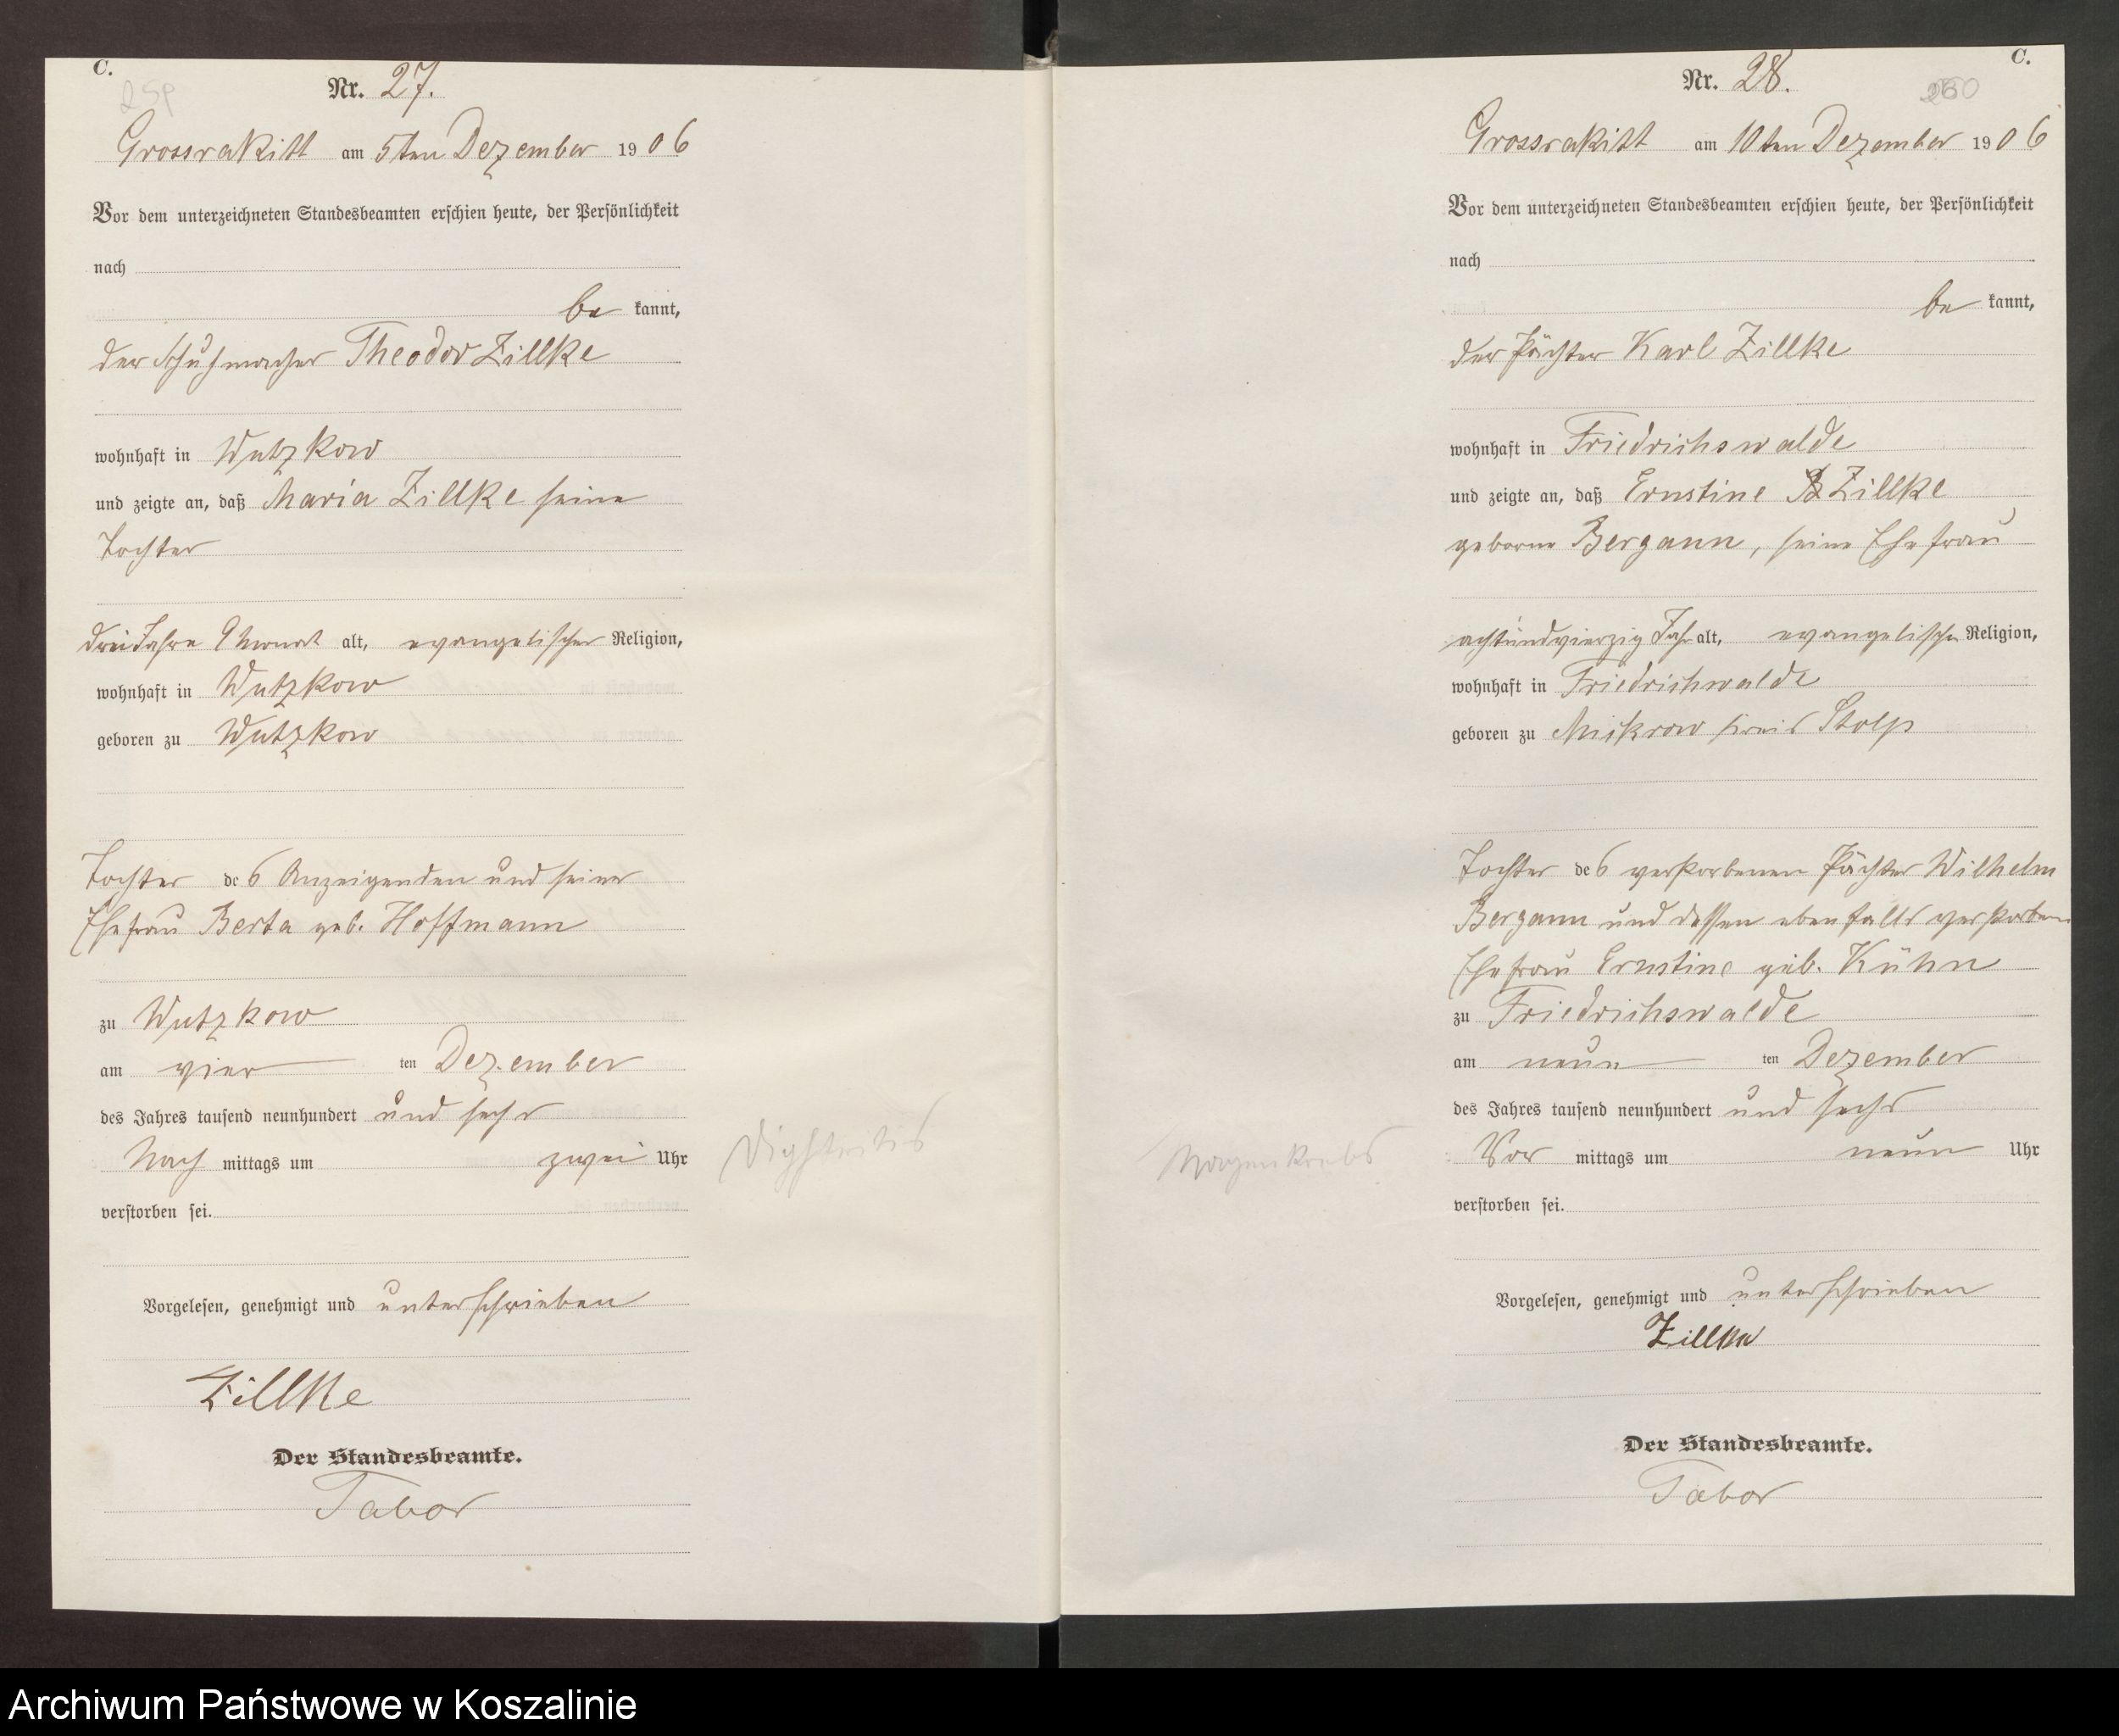 C.
Nr. 27.
Grossrakitt am 5ten Dezember 1906
Vor dem unterzeichneten Standesbeamten erschien heute, der Persönlichkeit
nach
be kannt,
der Schuhmacher Theodor Zillke
wohnhaft in Wutzkow
und zeigte an, daß Maria Zillke seine
Tochter
drei Jahre 9 Monat alt, evangelischer Religion,
wohnhaft in Wutzkow
geboren zu Wutzkow
Tochter des Anzeigenden und seiner
Ehefrau Berta geb. Hoffmann
zu Wutzkow
am vier ten Dezember
des Jahres tausend neunhundert und sechs
Nach mittags um zwei Uhr
verstorben sei.
Vorgelesen, genehmigt und unterschrieben
Zillke
Der Standesbeamte.
Tabor
Diphteritis
C.
Nr. 28.
Grossrakitt am 10ten Dezember 1906
Vor dem unterzeichneten Standesbeamten erschien heute, der Persönlichkeit
nach
be kannt,
der Pächter Karl Zillke
wohnhaft in Friedrichswalde
und zeigte an, daß Ernstine Zillke
geborne Bergann, seine Ehefrau
achtundvierzig Jahr alt, evangelischer Religion,
wohnhaft in Friedrichwalde
geboren zu Mikrow Kreis Stolp
Tochter des verstorbenen Pächter Wilhelm
Bergann und dessen ebenfalls verstorbenen
Ehefrau Ernstine geb. Kühn
zu Friedrichswalde
am neun ten Dezember
des Jahres tausend neunhundert und sechs
Vor mittags um neun Uhr
verstorben sei.
Vorgelesen, genehmigt und unterschrieben
Zillke
Der Standesbeamte.
Tabor
Magenkrebs
Archiwum Państwowe w Koszalinie